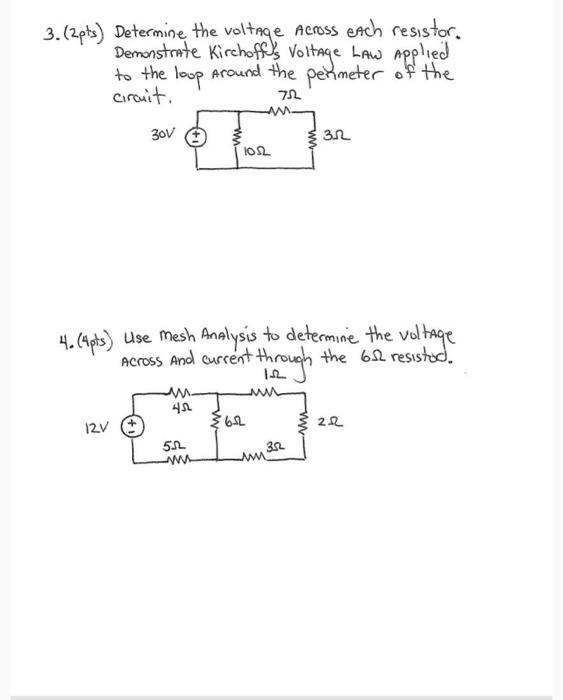 3. (2pts) Determine the voltage Across each resistor.
Demonstrate Kirchoff's Voltage Law Applied
to the loop Around the perimeter of the
circuit.
7Ω
30V
3Ω
10Ω
4. (4pts) Use Mesh Analysis to determine the voltage
Across And current through the 6Ω resistod.
1Ω
4Ω
12V
6Ω
2Ω
5Ω
3Ω